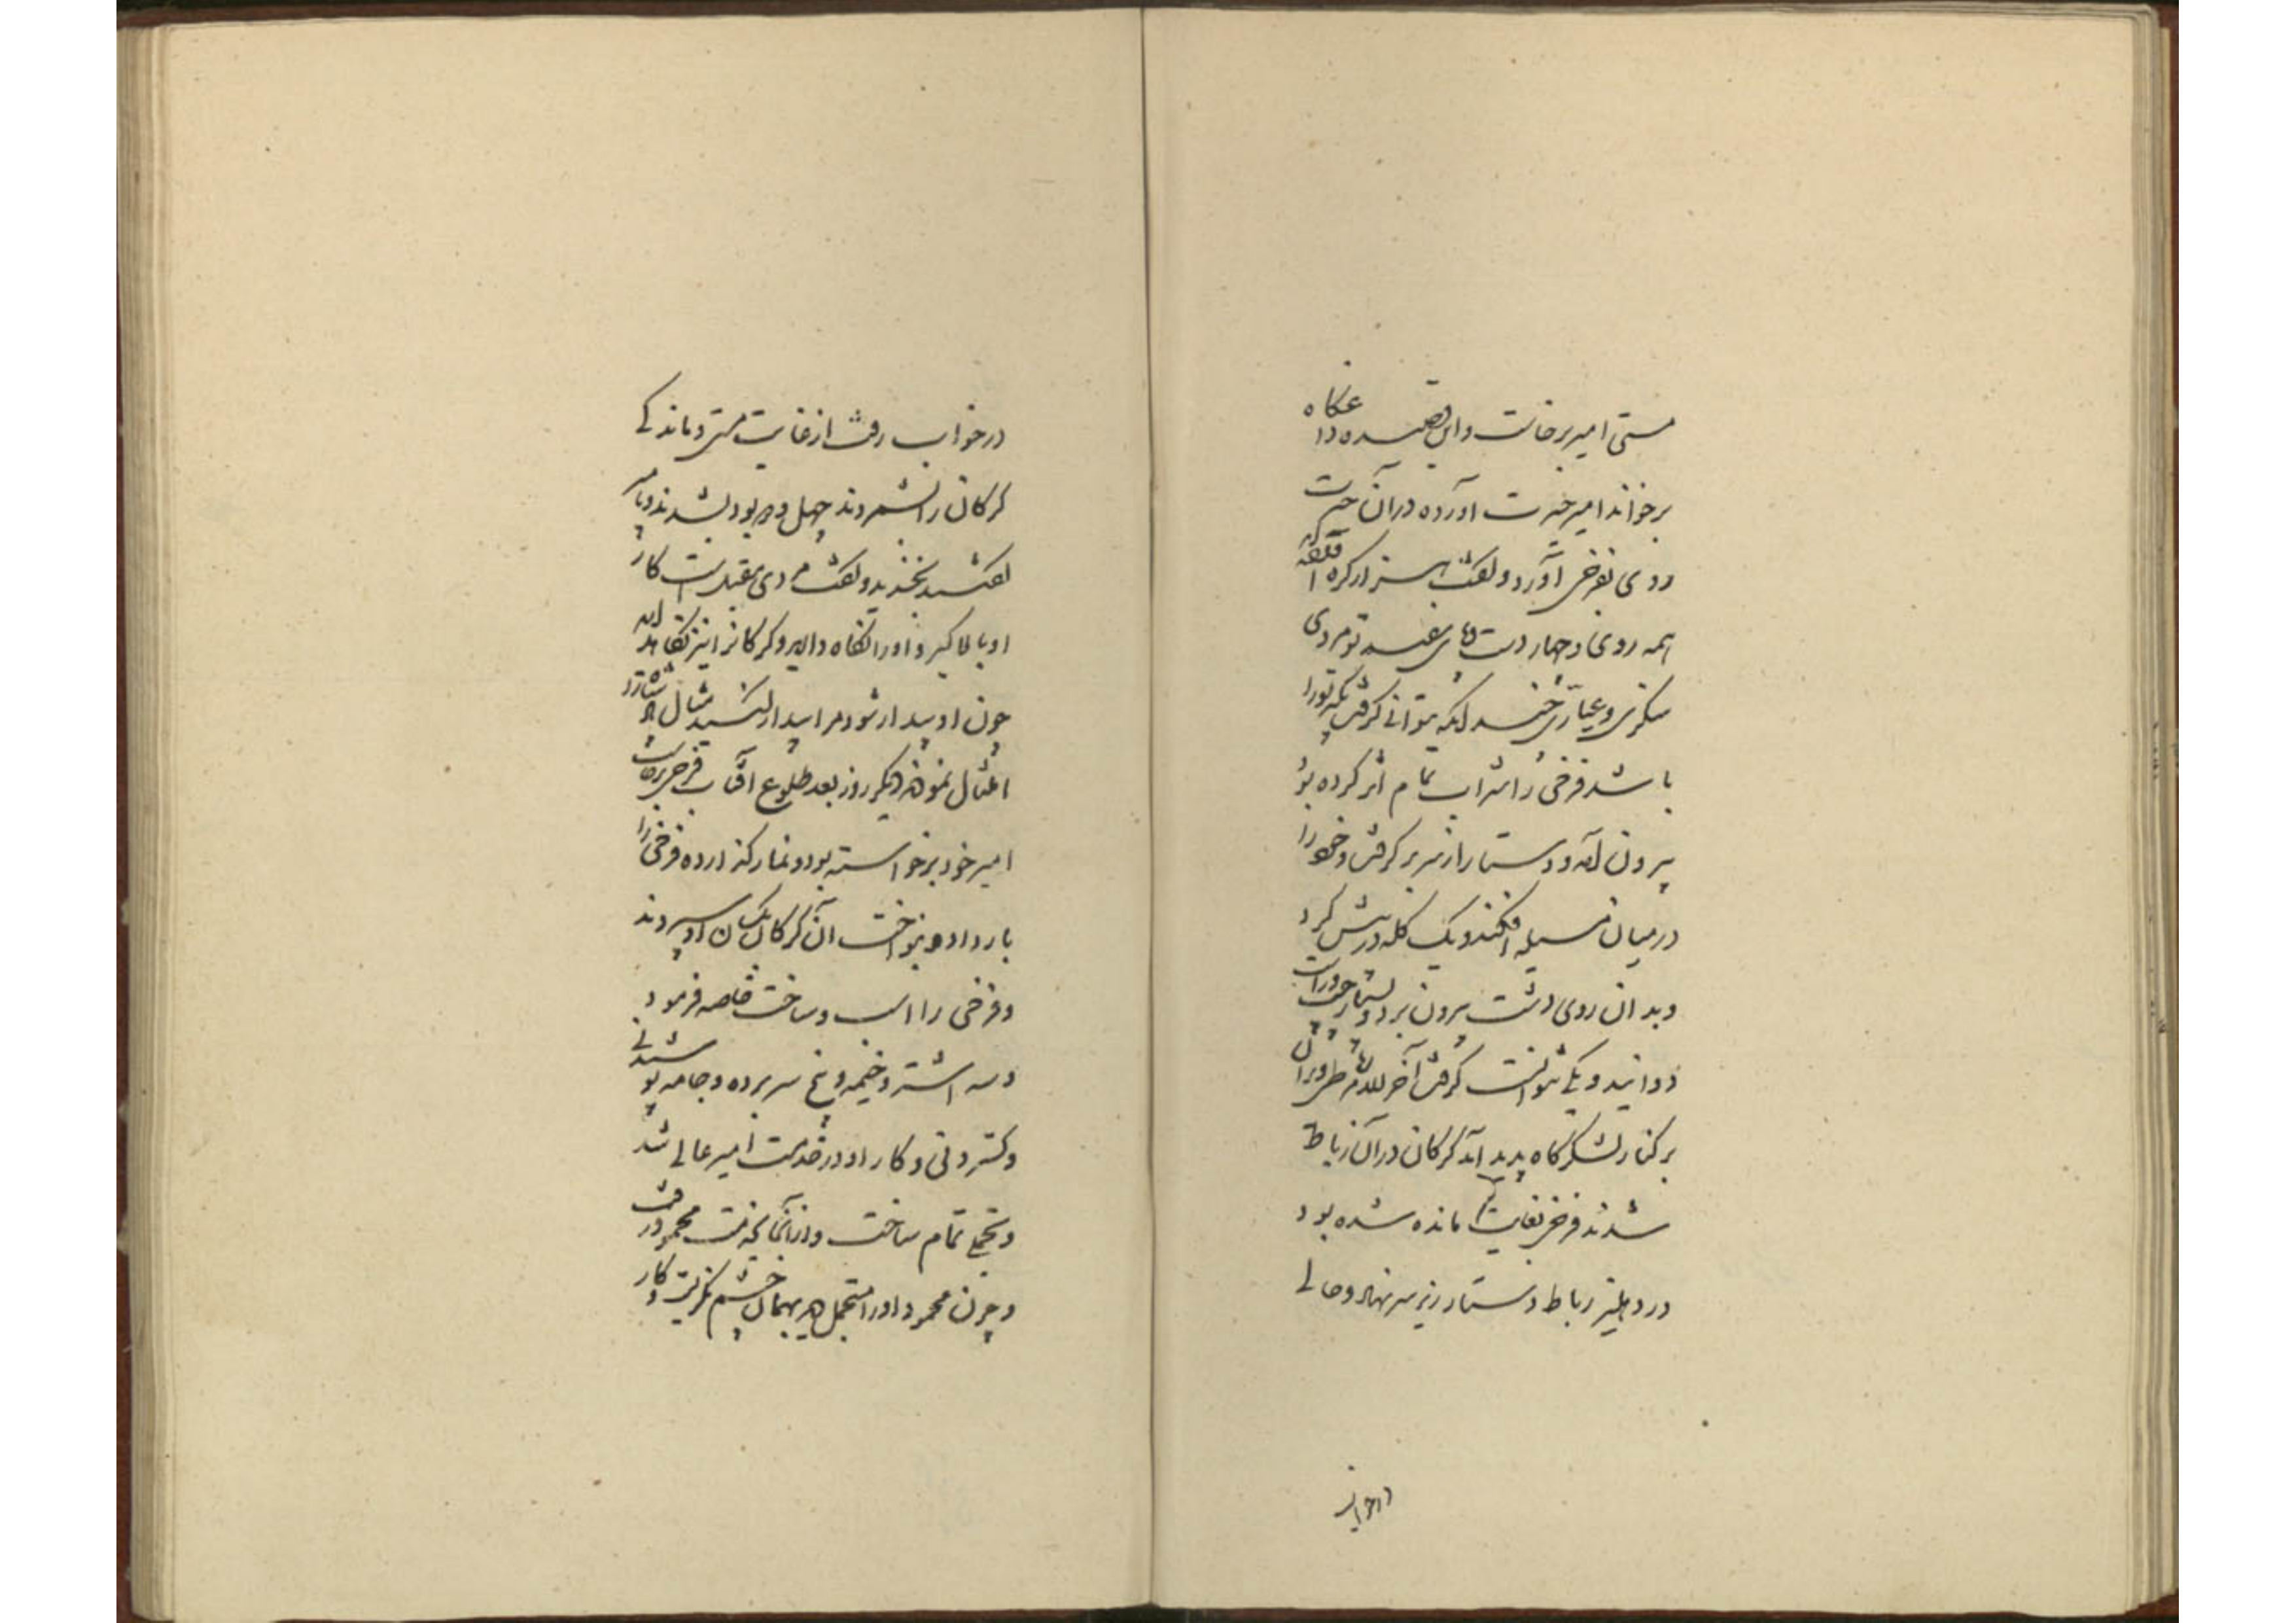 مستی امیر برخاست و این قصیده داغگاه
برخواند امیر حیرت آورده در آن حیرت
روی بفرخی آورد و گفت هزار کره اند
همه روی و چهار دست و پای سفید تو مردی
سگزی و عیاری چندانکه بتوانی گرفت بگیر تورا
باشد فرخی را شراب تمام اثر کرده بود
بیرون آمد و دستار از سر بر گرفت و خود را
در میان مسیله افکند و یک گله در پیش کرد
و بدان روی دشت بیرون برد و بسیار چپ و راست
دوانید و یکی نتوانست گرفت آخر الامر رباطی ویران
بر کنار لشکرگاه پدید آمد کرکان در آن رباط
شدند فرخی بغایت مانده شده بود
در دهلیز رباط دستار زیر سر نهاد و حالی
درخواب
در خواب رفت از غایت مستی و ماندگی
کرکان را بشمردند چهل و دو بود بشدند و بامیر
گفتند بخندید و گفت مردی مقبل است کار
او بالا گیرد او را نگاه دارید و کرکانرا نیز نگاهدارید
چون او بیدار شود مرا بیدار کنید مثال پادشاه را
امتثال نمودند دیگر روز بعد طلوع آفتاب فرخی برخاست
امیر خود برخواسته بود و نماز گذارده فرخی را
بار داد و بنواخت آن کرکان بکسان او سپردند
و فرخی را اسب و ساخت خاصه فرمود
و سه اشتر و خیمه و پنج سر برده و جامه پوشیدنی
و گستردنی و کار او در خدمت امیر عالی شد
و تجملی تمام ساخت و از آنجا بخدمت محمود رفت
و چون محمود او را متجمل دید بهمان چشم نگریست و کار